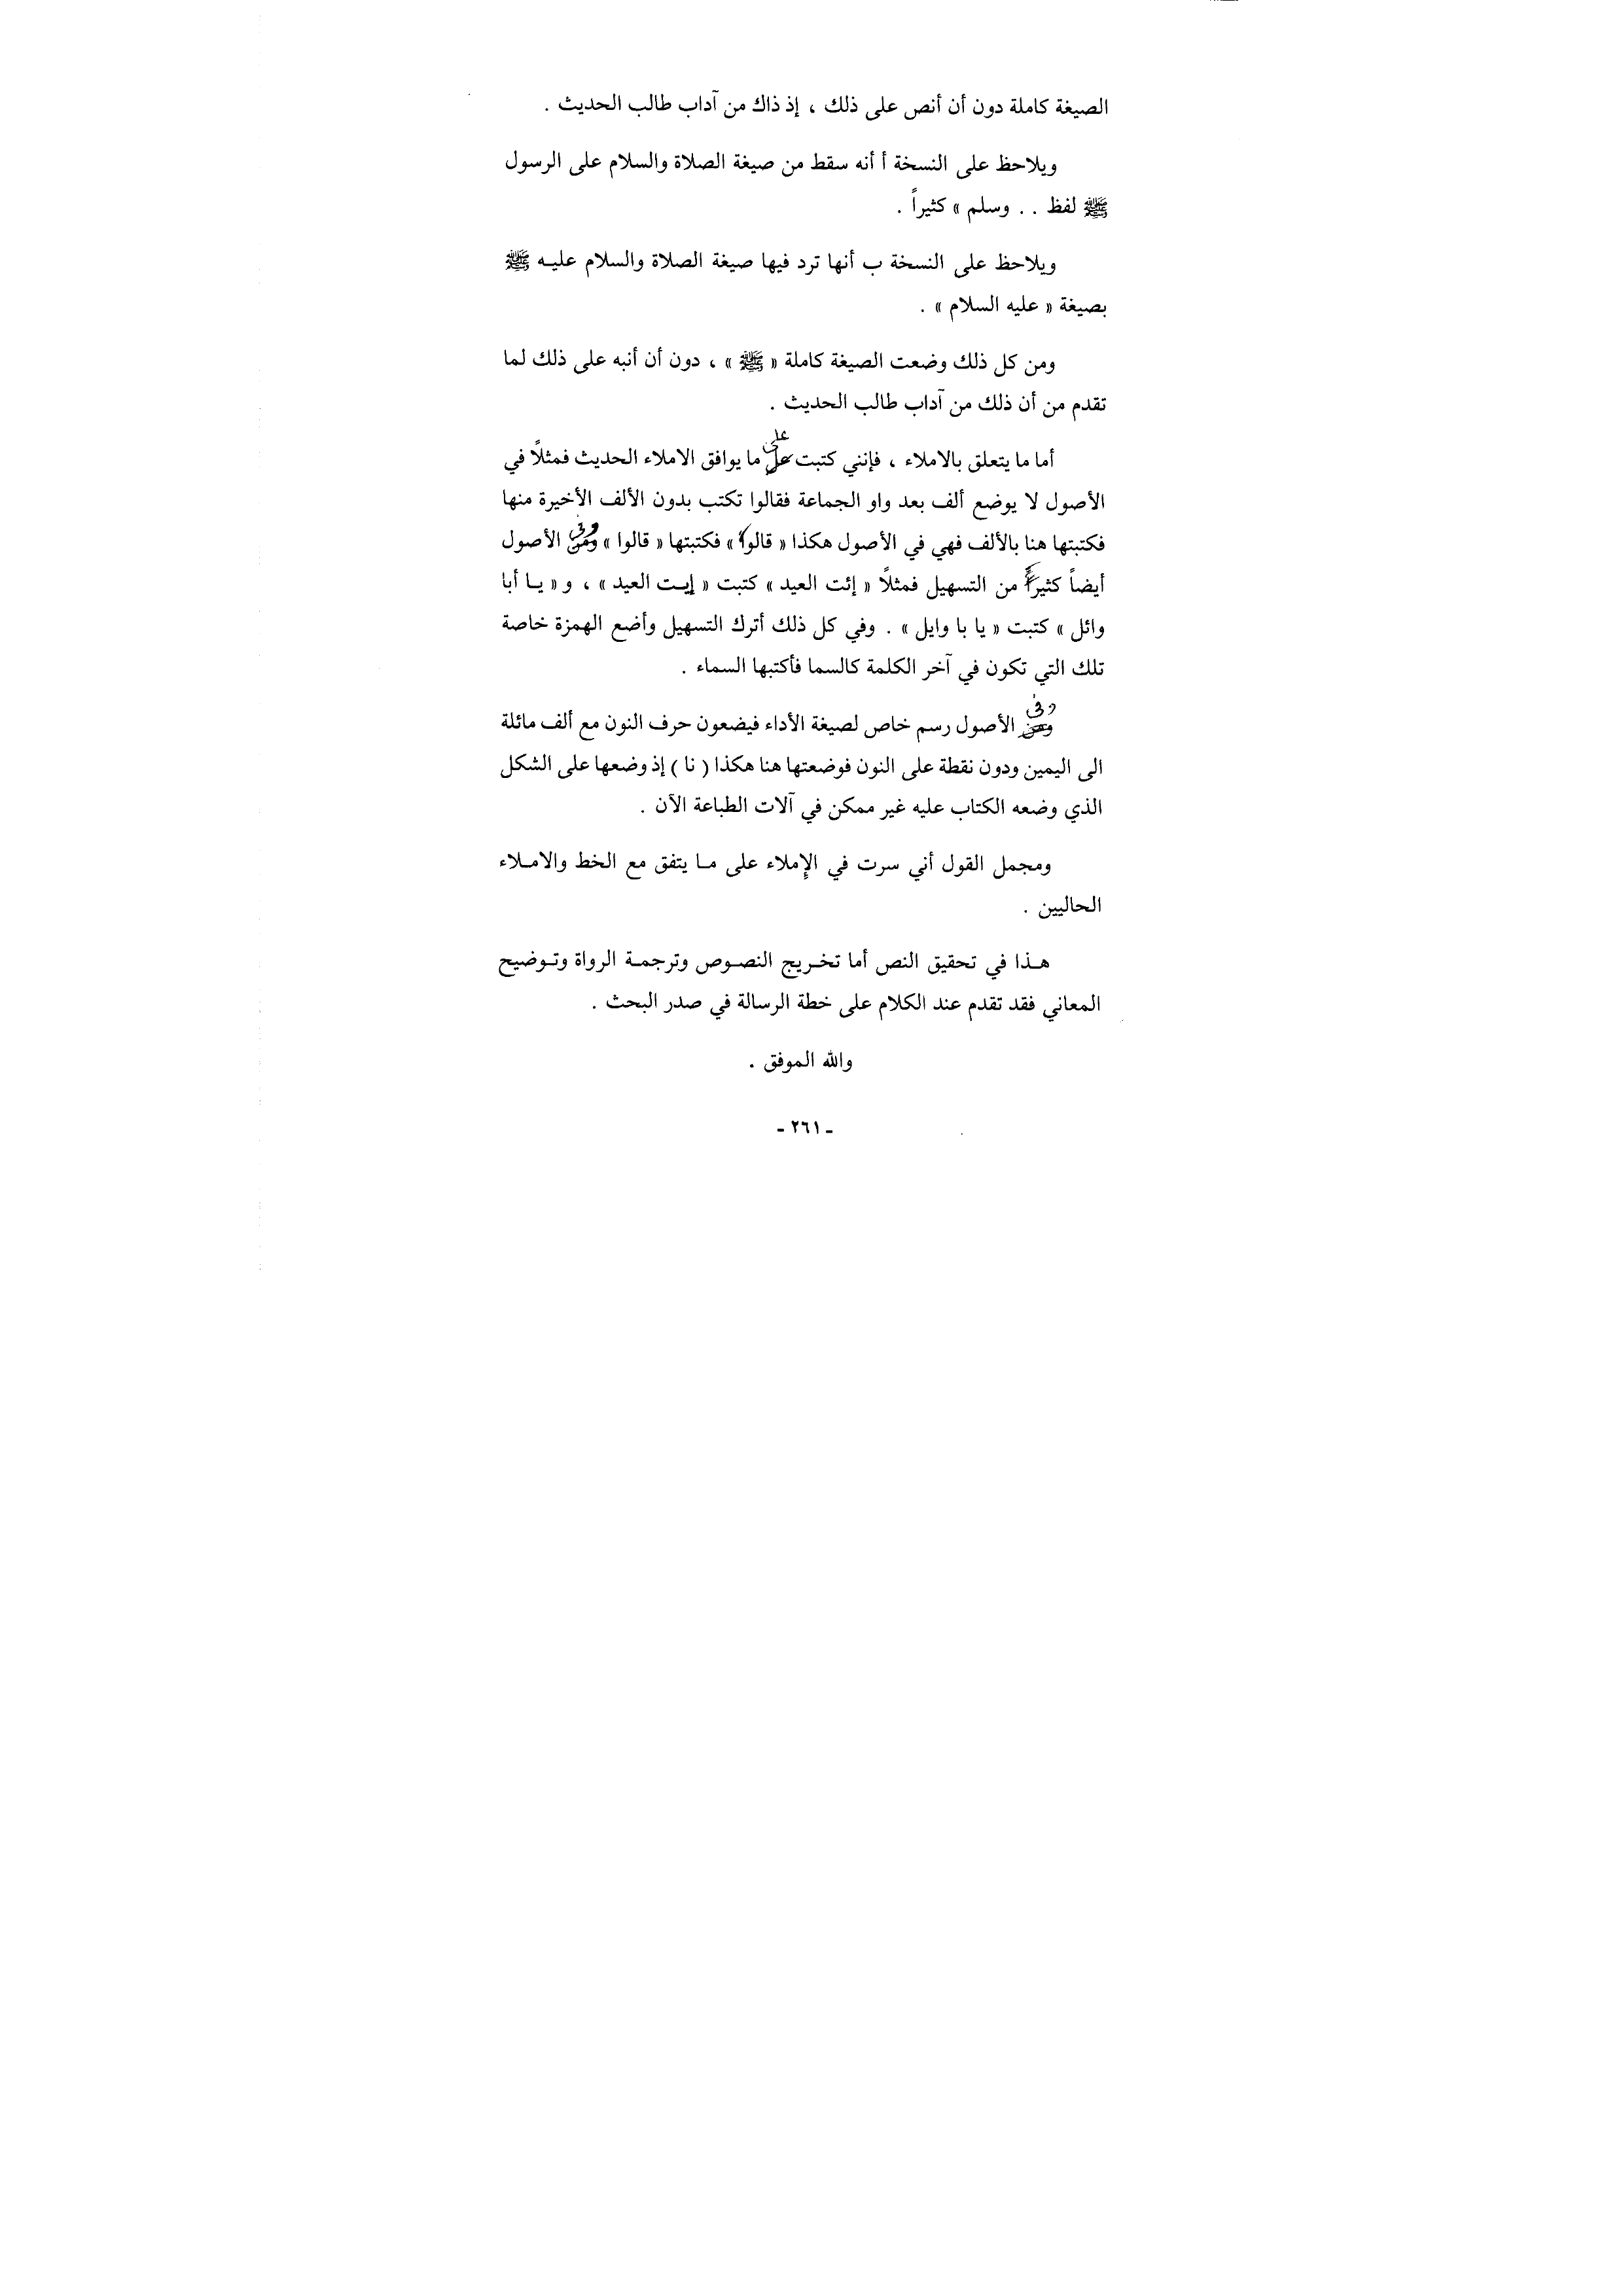 الصيغة كاملة دون أن أنص على ذلك ، إذ ذاك من آداب طالب الحديث .
ويلاحظ على النسخة أ أنه سقط من صيغة الصلاة والسلام على الرسول
ﷺ لفظ . . وسلم » كثيراً .
ويلاحظ على النسخة ب أنها ترد فيها صيغة الصلاة والسلام عليه ﷺ
بصيغة « عليه السلام » .
ومن كل ذلك وضعت الصيغة كاملة « ﷺ » ، دون أن أنبه على ذلك لما
تقدم من أن ذلك من آداب طالب الحديث .
أما ما يتعلق بالاملاء ، فإنني كتبت على ما يوافق الاملاء الحديث فمثلًا في
الأصول لا يوضع ألف بعد واو الجماعة فقالوا تكتب بدون الألف الأخيرة منها
فكتبتها هنا بالألف فهي في الأصول هكذا « قالو » فكتبتها « قالوا » وفي الأصول
أيضاً كثير من التسهيل فمثلًا « إئت العيد » كتبت « إيت العيد » ، و « يا أبا
وائل » كتبت « يا با وايل » . وفي كل ذلك أترك التسهيل وأضع الهمزة خاصة
تلك التي تكون في آخر الكلمة كالسما فأكتبها السماء .
وفي الأصول رسم خاص لصيغة الأداء فيضعون حرف النون مع ألف مائلة
الى اليمين ودون نقطة على النون فوضعتها هنا هكذا ( نا ) إذ وضعها على الشكل
الذي وضعه الكتاب عليه غير ممكن في آلات الطباعة الآن .
ومجمل القول أني سرت في الإملاء على ما يتفق مع الخط والاملاء
الحاليين .
هذا في تحقيق النص أما تخريج النصوص وترجمة الرواة وتوضيح
المعاني فقد تقدم عند الكلام على خطة الرسالة في صدر البحث .
والله الموفق .
- ٢٦١ -